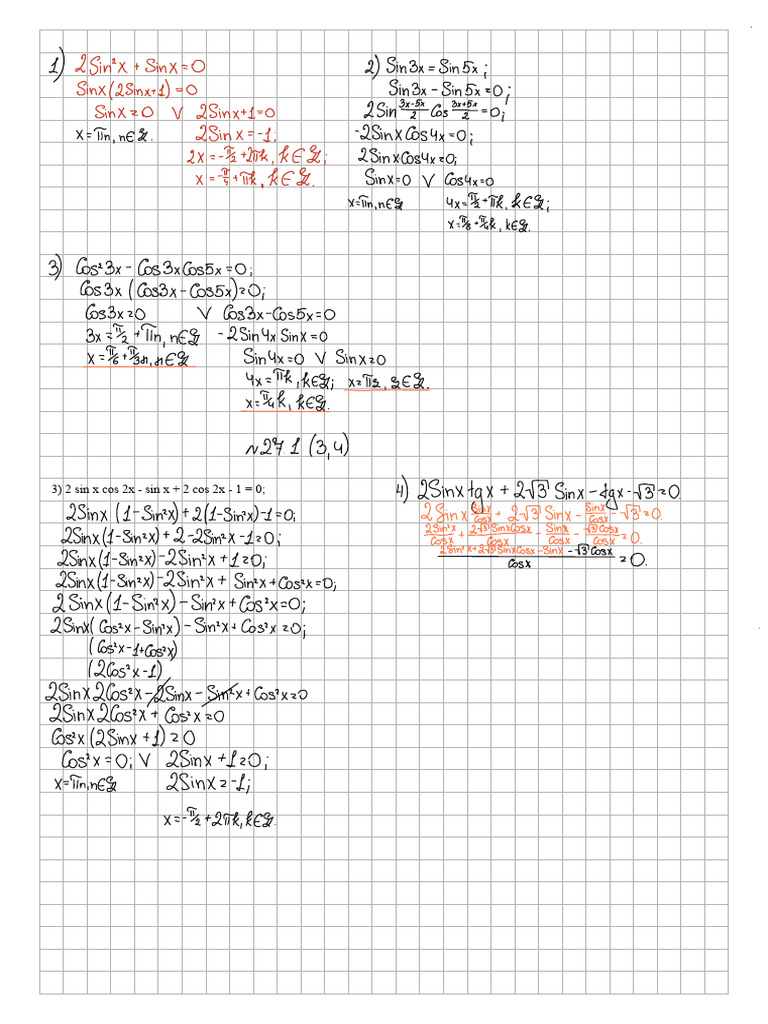 1) 2Sin²x + Sinx = 0
Sinx(2Sinx+1) = 0
Sinx = 0 V 2Sinx+1=0
x = πn, n∈ℤ. 2Sinx = -1;
2x = -π/2 + 2πk, k∈ℤ;
x = -π/4 + πk, k∈ℤ.
2) Sin3x = Sin5x;
Sin3x - Sin5x = 0;
2Sin (3x-5x)/2 Cos (3x+5x)/2 = 0;
-2SinxCos4x = 0;
2SinxCos4x = 0;
Sinx = 0 V Cos4x = 0
x = πn, n∈ℤ 4x = π/2 + πk, k∈ℤ;
x = π/8 + π/4k, k∈ℤ.
3) Cos²3x - Cos3xCos5x = 0;
Cos3x(Cos3x - Cos5x) = 0;
Cos3x = 0 V Cos3x - Cos5x = 0
3x = π/2 + πn, n∈ℤ -2Sin4xSinx = 0
x = π/6 + π/3n, n∈ℤ Sin4x = 0 V Sinx = 0
4x = πk, k∈ℤ; x = πz, z∈ℤ.
x = π/4k, k∈ℤ.
№27.1 (3,4)
3) 2 sin x cos 2x - sin x + 2 cos 2x - 1 = 0;
2Sinx (1-Sin²x) + 2(1-Sin²x) - 1 = 0;
2Sinx(1-Sin²x) + 2 - 2Sin²x - 1 = 0;
2Sinx(1-Sin²x) - 2Sin²x + 1 = 0;
2Sinx(1-Sin²x) - 2Sin²x + Sin²x + Cos²x = 0;
2Sinx(1-Sin²x) - Sin²x + Cos²x = 0;
2Sinx(Cos²x - Sin²x) - Sin²x + Cos²x = 0;
(Cos²x - 1 + Cos²x)
(2Cos²x - 1)
2Sinx2Cos²x - 2Sinx - Sin²x + Cos²x = 0
2Sinx2Cos²x + Cos²x = 0
Cos²x(2Sinx + 1) = 0
Cos²x = 0; V 2Sinx + 1 = 0;
x = πn, n∈ℤ 2Sinx = -1;
x = -π/2 + 2πk, k∈ℤ.
4) 2Sinxtgx + 2√3 Sinx - tgx - √3 = 0
2Sinx Sinx/Cosx + 2√3 Sinx - Sinx/Cosx - √3 = 0.
2Sin²x/Cosx + 2√3SinxCosx/Cosx - Sinx/Cosx - √3Cosx/Cosx = 0.
(2Sin²x + 2√3SinxCosx - Sinx - √3Cosx)/Cosx = 0.